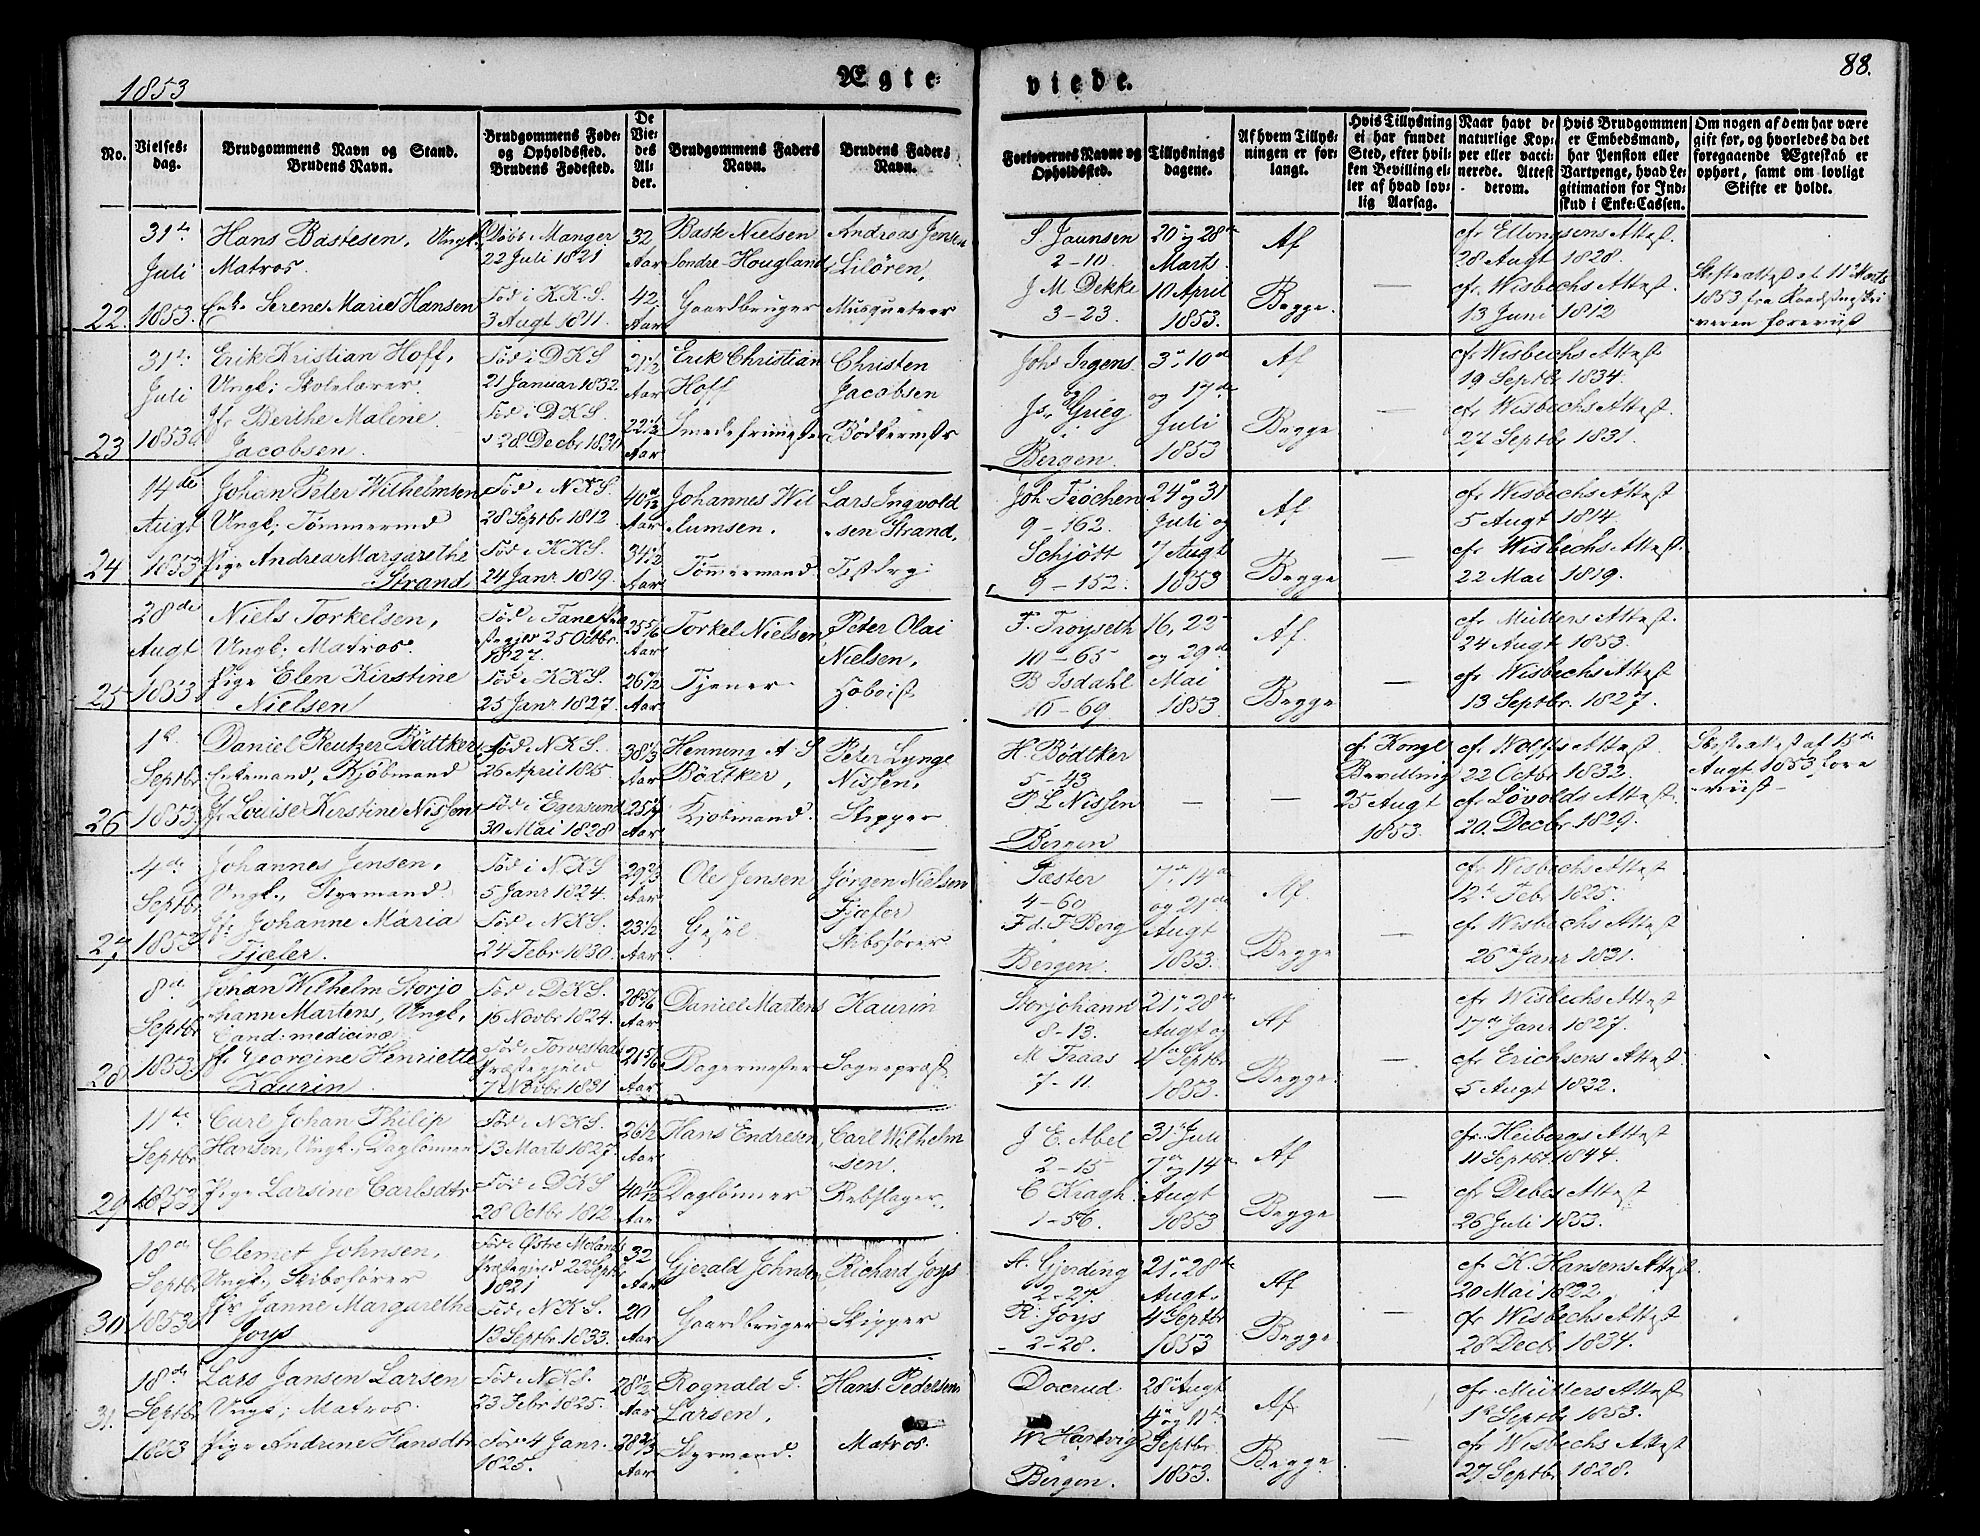 1853
Ægte
viede.
88.
No.
Vielses-
dag.
Brudgommens Navn og Stand.
Brudens Navn.
Brudgommens Føde-
og Opholdssted.
Brudens Fødested.
De
Vie-
des
Al-
der.
Brudgommens Faders
Navn.
Brudens Faders
Navn.
Forlovernes Navne og
Opholdssted.
Tillysnings
dagene.
Af hvem Tillys-
ningen er for-
langt.
Hvis Tillysning
ei har fundet
Sted, efter hvil-
ken Bevilling el-
ler af hvad lov-
lig Aarsag.
Naar havt de
naturlige Kop-
per eller vacci-
nerede. Attest
derom.
Hvis Brudgommen
er Embedsmand,
har Pension eller
Vartpenge, hvad Le-
gitimation for Ind-
skud i Enke-Cassen.
Om nogen af dem har være
gift før, og hvorledes da det
foregaaende Ægteskab er
ophørt, samt om lovligt
Skifte er holdt.
22.
31te
Juli
1853.
Hans Bastesen, Ungk.
Matros.
Enke Serene Marie Hansen
Døbt Manger
22 Juli 1821
Fød i K.K.S.
3 Augt 1811.
32
Aar
42.
Aar
Baste Nielsen
Søndre-Hougland
Gaardbruger
Andreas Jensen
Liløren,
Musqueteer
S. Jaunsen
2-10.
J M. Dekke
3-23.
20 og 28de
Marts
10 April
1853.
Af
Begge.
—
cfr Ellongsens Attest.
28 Augt 1828.
cfr. Wisbechs Attest.
13 Juni 1812
Skifteattest af 11te Marts
1853 fra Raadstueskri
veren foreviist
23
31te
Juli
1853
Erik Kristian Hoff,
Ungk; Skolelærer.
Jfr Berthe Maline
Jacobsen.
Fød i D.K.S.
21 Januar 1832.
Fød i D.K.S.
28 Decbr 1830
21 1/2
Aar
22 1/2
Aar
Erik Christian
Hoff
Smedesvinn
Christen
Jacobsen
Bødkermstr
Joh Irgens
og
Js. Grieg
i
Bergen.
3, 10de
og 17de
Juli
1853
Af
Begge
—
cfr Wisbechs Attest.
19 Septbr 1834.
cfr. Wisbechs Attest.
27 Septbr 1831.
24
14de
Augt
1853
Johan Peter Wilhelmsen
Ungk; Tømmermd
Pige Andrea Margarethe
Strand
Fød i N.K.S.
28 Septbr 1812
Fød i K.K.S.
24 Janr 1819.
40 10/12
Aar
34 1/2
Aar
Johannes Wil
lumsen.
Tømmermand
Lars Ingvold
sen Strand,
Joh Trochen
9-162.
Schjøtt
9-152.
24 og 31
Juli og
7 Augt
1853
Af
Begge
—
cfr Wisbechs Attest
5 Augt 1814
cfr. Wisbechs Attest.
22 Mai 1819.
25
28de
Augt
1853
Niels Torkelsen,
Ungk: Matros.
Pige Elen Kirstine
Nielsen
Fød i Fane Præ
stegjeld 25 Octbr
1827.
Fød i K.K.S.
25 Janr 1827.
25 5/6
Aar
26 1/2
Aar
Torkel Nielsen
Tjener
Peter Olai
Nielsen,
Hoboist
F. Troyseth
10-65
B Isdahl
16-69
16, 23
og 29de
Mai
1853
Af.
Begge
—
cfr. Müllers Attest
24 Augt 1853.
cfr Wisbechs Attest.
13 Septbr 1827.
26
1ste
Septbr
1853
Daniel Reutzer Bødtker
Enkemand, Kjøbmand
Jfr Louise Kirstine Nissen
Fød i N.K.S.
26 April 1815
Fød i Egersund
30 Mai 1828
38 1/3
Aar
25 1/4
Aar
Henning A. S
Bødtker,
Kjøbmand.
Peter Lynge
Nissen,
Skipper
H. Bødtker
5-43
P L Nissen
Bergen
—
—
cfr. Kongl
Bevilling
25 Augt
1853.
cfr. Wolffs Attest.
22 Octbr 1832.
cfr Løvolds Attest.
20. Decbr 1829.
Skifteattest af 15de
Augt 1853 fore
viist
27
4de
Septbr
1853
Johannes Jensen,
Ungk., Styrmand
Jfr Johanne Maria
Fjæfer
Fød i N.K.S
5 Janr 1824.
Fød i N.K.S.
24 Febr 1830.
29 2/3
Aar
23 1/2
Aar
Ole Jensen
Jørgen Nielsen
Fjæfer
Skibsfører
Fæster
4-60
F d. F Berg
Bergen.
7, 14de
og 21de
Augt
1853.
Af.
Begge
—
cfr. Wisbechs Attest
12te Febr 1825.
cfr Wisbechs Attest
26 Janr 1831.
28
8de
Septbr
1853
Johan Wilhelm Storjo
hann Martens, Ungk,
Cand: medicinæ
Jfr Georgine Henriette
Kaurin
Fød i D.K.S.
16 Novbr 1824.
Fød i Torvestads
Præstegjeld
7 Novbr 1831
28 5/6
Aar
21 5/6
Aar
Daniel Martens
Bagermester
Kaurin
Sognepræst.
Storjohann
8-13.
M. Traas
7-11.
21, 28de
Augt og
4de Septbr
1853.
Af
Begge.
—
cfr Wisbechs Attest
17de Janr 1827.
cfr. Erichsens Attest
5 Augt 1832.
29
11te
Septbr
1853
Carl Johan Philip
Hansen, Ungk., Daglønner
Pige Larsine Carlsdtr
Fød i N.K.S.
13 Marts 1827.
Fød i D.K.S
28 Octbr 1812.
26 1/2
Aar
40 11/12
Aar
Hans Endresen
Daglønner
Carl Wilhelm
sen.
Rebslager.
J E. Abel
2-15
C. Kragh
1-56.
31 Juli
7 og 14de
Augt
1853
Af
Begge
—
cfr. Heibergs Attest
11 Septbr 1844.
cfr. Debes Attest
26 Juli 1853.
30
18de
Septbr
1853
Clemet Johnsen,
Ungk., Skibsfører
Jfr Janne Margarethe
Joys
Fød i Østre Molands
Præstegjeld 23 Septbr
1821
Fød i N.K.S.
13 Septbr 1833.
32
Aar
20
Aar
Gjerald Johnsen
Gaardbruger
Richard Joys
Skipper
A. Gjerding
2-27.
R. Joys
2-28.
21, 28de
Augt.
4 Septbr
1853
Af
Begge
—
cf K. Hansens Attest.
20 Mai 1822.
cfr Wisbechs Attest
28 Decbr 1834.
31.
18de
Septbr
1853
Lars Jansen Larsen
Ungk; Matros.
Pige Andrine Hansdtr
Fød i N.K.S.
23 Febr 1825.
Fød 4 Janr.
1825.
28 1/2
Aar
28 2/3
Aar
Rognald J.
Larsen,
Styrmand.
Hans Pedersen
Matros.
Daxrud
W Hartvig
Bergen.
28 Augt
4 og 11te
Septbr
1853.
Af
Begge.
—
cfr. Müllers Attest
1ste Septbr 1853.
cfr Wisbechs Attest
27 Septbr 1828.